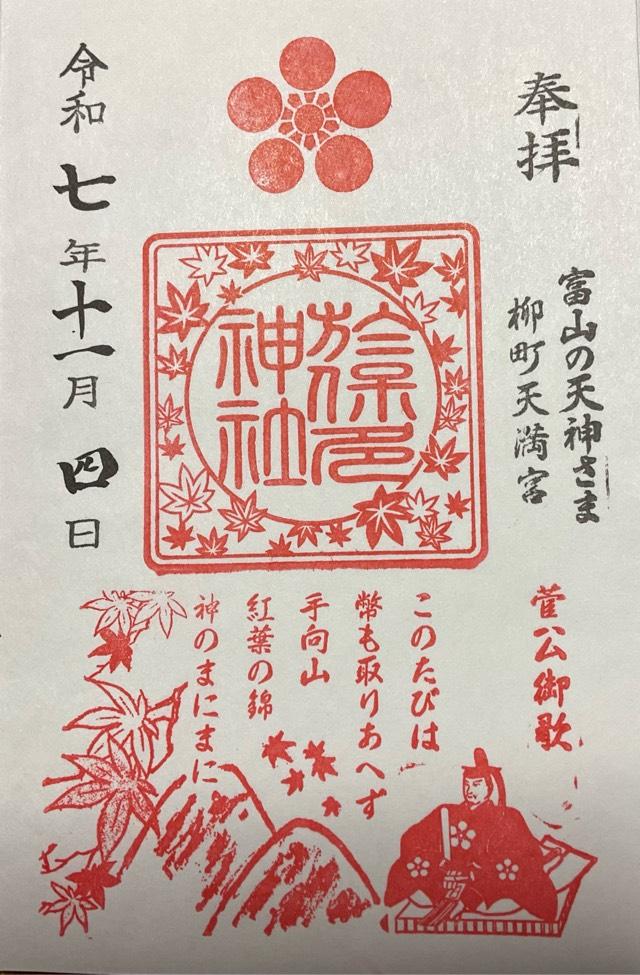 奉拝
富山の天神さま
柳町天満宮
於保多
神社
令和七年十一月四日
菅公御歌
このたびは
幣も取りあへず
手向山
紅葉の錦
神のまにまに